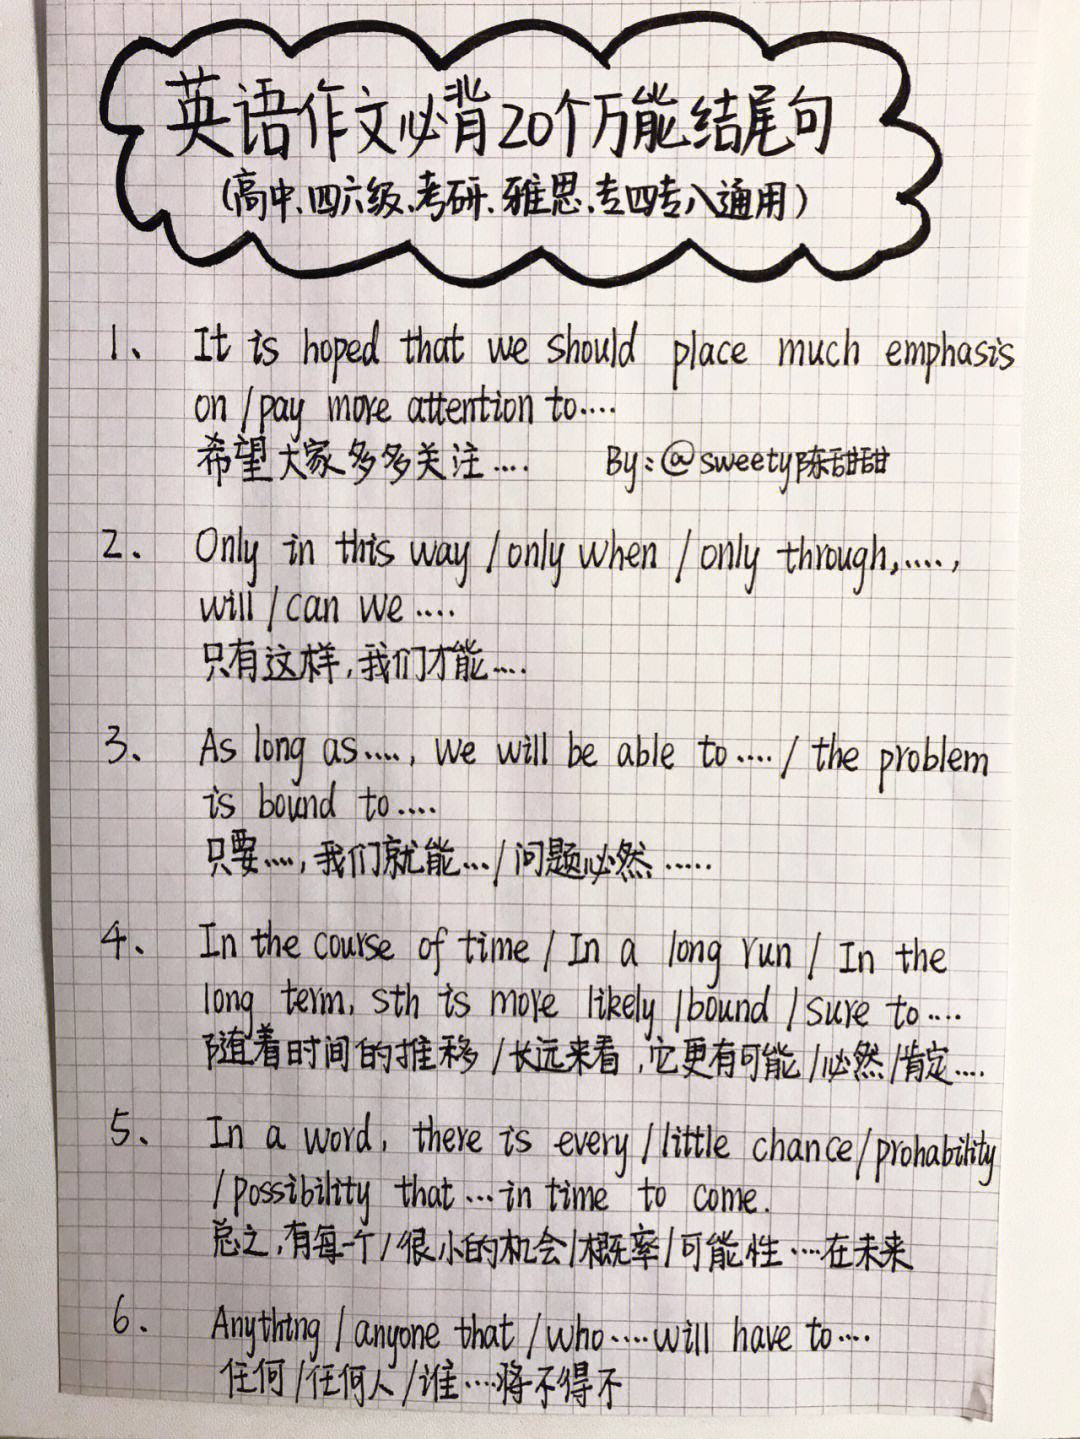 英语作文必背20个万能结尾句
(高中、四六级、考研、雅思、专四专八通用)
1、 It is hoped that we should place much emphasis
on/pay more attention to....
希望大家多多关注.... By:@sweety陈甜甜
2、 Only in this way/only when/only through,....,
will/can we....
只有这样,我们才能....
3、 As long as...., we will be able to..../the problem
is bound to....
只要....,我们就能.../问题必然......
4、 In the course of time/In a long run/In the
long term, sth is more likely/bound/sure to....
随着时间的推移/长远来看,它更有可能/必然/肯定....
5、 In a word, there is every/little chance/probability
/possibility that...in time to come.
总之,有每一个/很小的机会/概率/可能性....在未来
6、 Anything/anyone that/who....will have to....
任何/任何人/谁....将不得不